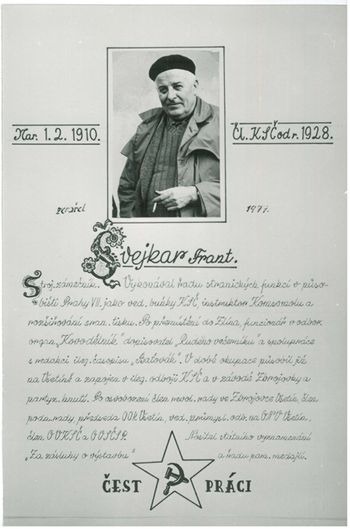 Nar. 1. 2. 1910.
Čl. KSČ od r. 1928.
zemřel
1977.
Švejkar Frant.
Stroj. zámečník. Vykonával řadu stranických funkcí v působ-
išti Prahy VII. jako ved. buňky KSČ, instruktor Komsomolu a
rozšiřování stran. tisku. Po přemístění do Zlína, funcionář v odbor.
organ. „Kovodělník" dopisovatel „Rudého večerníku" a spolupráce
s redakcí ileg. časopisu „Baťovák". V době okupace působil již
na Vsetíně a zapojen v ileg. odboji KSČ a v závodě Zbrojovky a
partyz. hnutí. Po osvobození člen revol. rady ve Zbrojovce Vsetín, člen
podn. rady, předseda OOR Vsetín, ved. průmysl. odb. na ONV Vsetín,
člen OV KSČ a OV SČSP. Nositel státního vyznamenání
„Za zásluhy o výstavbu" a řadu pam. medailí.
ČEST PRÁCI